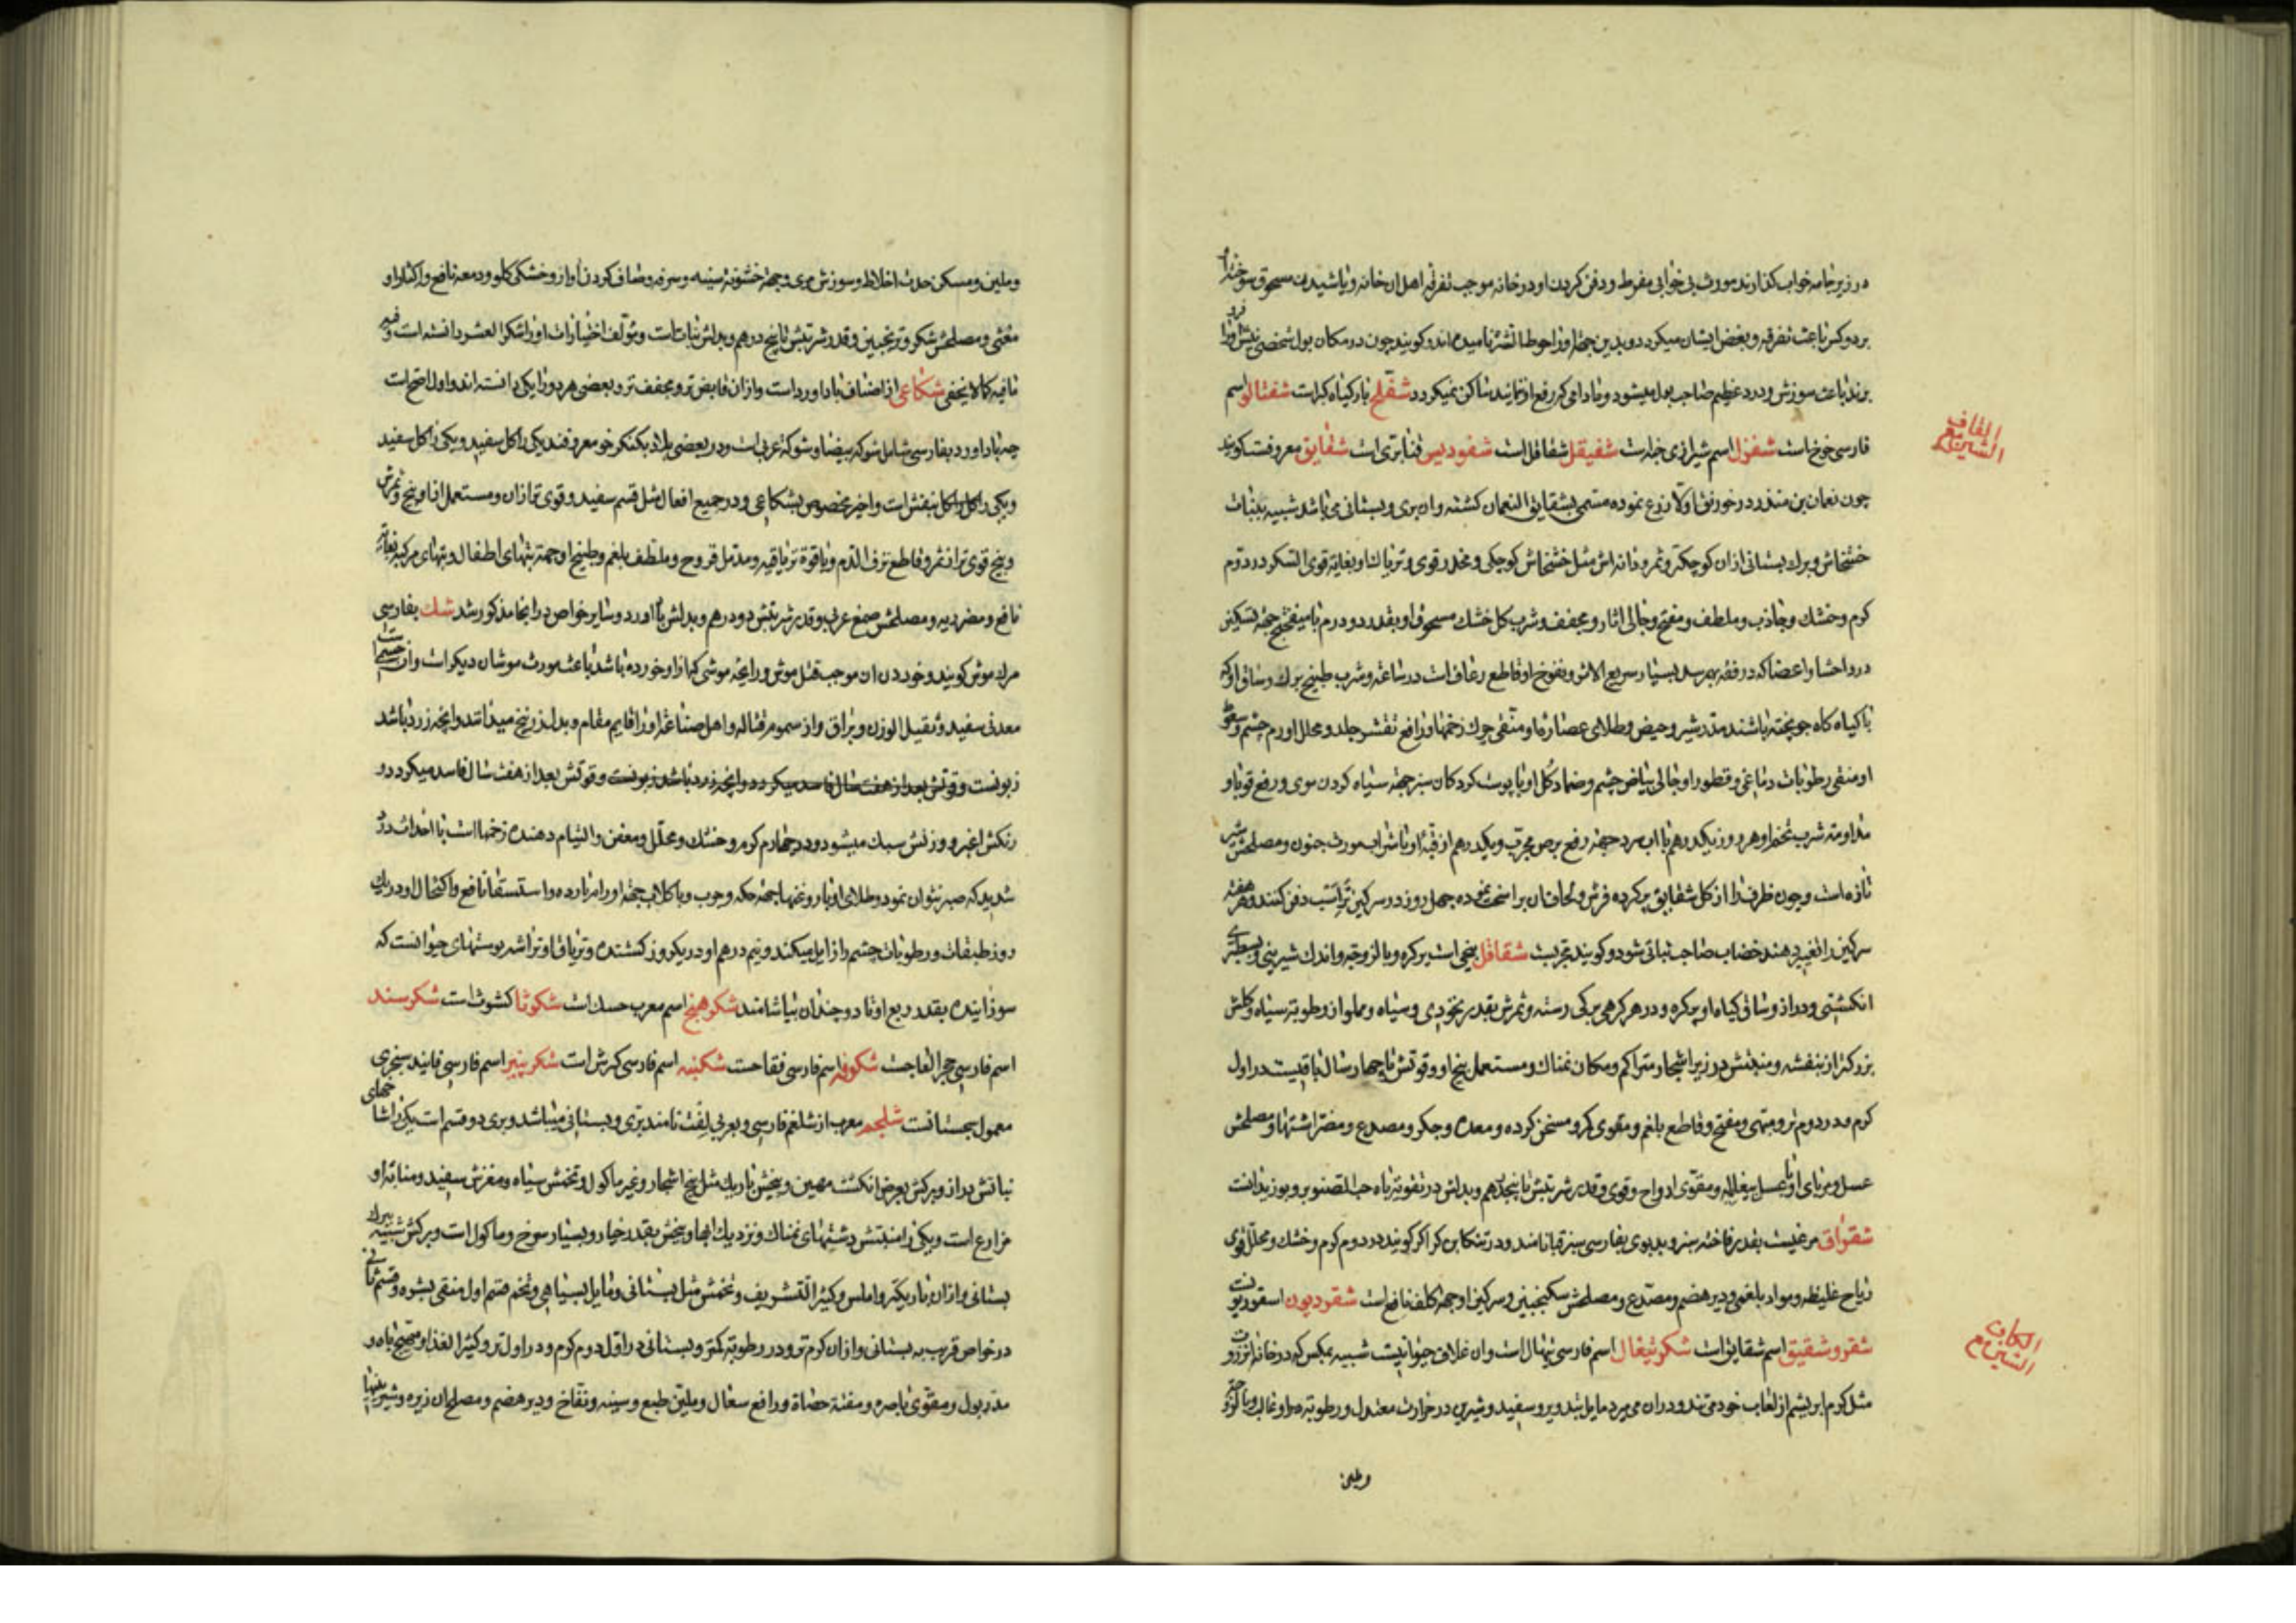 در زیر جامه خواب کذارند مورث بی خوابی مفرط و دفن کردن او در خانه موجب تفرقه اهل ان خانه و پاشیدن مسحوق سوخته
بر دو کس باعث تفرقه و بغض ایشان میکردد و بدین جهة او را حوطا لشر نامیده اند و کویند چون در مکان بول شخصی نیش او را فرو
برند باعث سوزش و درد عظیم صاحب بول میشود و تا دامی که رفع او نمایند ساکن نمیکردد شفلح بار کیاه کبر است شفتالو اسم
فارسی خوخ است شفزل اسم شیرازی است شفیقل شقاقل است شفودیس قنابری است شقایق معروفست کویند
القاف مع الشین
چون نعمان بن منذر در خورنق اولا زرع نموده مسمی بشقایق النعمان کشته و ان بری و بستانی می باشد شبیه بنبات
خشخاش و برک بستانی ازان کوچکتر و ثمر و دانه اش مثل خشخاش کوچکی و مخدر قوی و تریاک او بغایة قوی السکر در دوم
کرم و خشک و جاذب و ملطف و مفتح و جالی اثار و مجفف و شرب کل خشک مسحوق او بقدر دو درم با میفختج جهة تسکین
درد احشا و اعضا که دفعه بهم رسد بسیار سریع الاثر و نفوخ او قاطع رعاف است در ساعة و شرب طبیخ برک و ساق او که
با کیاه کاه جو پخته باشند مدر شیر و حیض و طلای عصاره او منقی چرک زخمها و رافع تقشر جلد و محلل اورم چشم و سعوط
او منقی رطوبات دماغی و قطور او جالی بیاض چشم و ضماد کل او با پوست کردکان سبز جهة سیاه کردن موی و رفع قوبا و
مداومة شرب تخم او هر روز یکدرهم با اب سرد جهة رفع برص مجرب و یکدرهم از قبه او با شراب مورث جنون و مصلحش شیر
تازه است و چون ظرف را از کل شقایق پر کرده فرش و لحاف ان براسخت نموده چهل روز در سرکین تر اسب دفن کنند و هر هفته
سرکین را تغییر دهند خضاب صاحب ثباتی شود و کویند مجربست شقاقل بیخی است پر کره و با لزوجة و اندک شیرینی و بسطبری
انکشتی و دراز و ساق کیاه او پر کره و در هر کرهی برکی رسته و ثمرش بقدر نخودی و سیاه و مملو از رطوبة سیاه و کلش
بزرکتر از بنفشه و منبتش در زیر اشجار متراکم و مکان نمناک و مستعمل بیخ او و قوتش تا چهار سال باقیست در اول
کرم و در دوم تر و مبهی و مفتح و قاطع بلغم و مقوی کمر و مسخن کرده و معده و جکر و مصدع و مضر اشتها و مصلحش
عسل و مربای او با عسل بیغایله و مقوی ارواح و قوی و قدر شربتش تا پنجدرهم و بدلش در تقویة باه حب الصنوبر و بوزیدانست
شقراق مرغیست بقدر فاخته سبز و بدبوی بفارسی سبز قبا نامند و در تنکابن کراکر کویند در دوم کرم و خشک و محلل قوی
ریاح غلیظه و مواد بلغمی و دیر هضم و مصدع و مصلحش سکنجبین و سرکین او جهة کلف نافع است شقوردیون اسقوردیونست
شقر و شقیق اسم شقایق است شکر تیغال اسم فارسی تیهال است و ان غلاف حیوانیست شبیه بمکس که در خانه
الکاف مع الشین
مثل کرم ابریشم از لعاب خود می تند و دران می میرد مایل بتدویر و سفید و شیرین در حرارت معتدل و رطوبة در او غالب و با لزوجة
و ملین
و ملین و مسکن حدت اخلاط و سوزش مری و جهة خشونة سینه و سرفه و صاف کردن اواز و خشکی کلو و معده نافع و اکثار او
مغثی و مصلحش شکر و ترنجبین و قدر شربتش تا پنج درهم و بدلش نباتات است و مؤلف اختیارات او را شکر العشر دانسته است و فیه
مافیه کما لا یخفی شکاعی از اصناف باداورد است و ازان قابض تر و مجفف تر و بعضی هر دو را یکی دانسته اند و اول اصح است
چه باداورد بفارسی شامل شوکه بیضا و شوکه عربی است و در بعضی بلاد بکنکر خر معروفند یکی را کل سفید و یکی را کل سفید
و یکی را کل بنفش است و اخیر مخصوص بشکاعی و در جمیع افعال مثل قسم سفید و قوی تر ازان و مستعمل از او بیخ و ثمرش
و بیخ قوی تر از ثمر و قاطع نزف الدم و با قوة تریاقیه و مدمل قروح و ملطف بلغم و طبیخ او جهة تبهای اطفال و تبهای مرکبه بغایة
نافع و مضر ریه و مصلحش صمغ عربی و قدر شربتش دو درهم و بدلش باداورد و سایر خواص در انجا مذکور شد شک بفارسی
مرک موش کویند و خوردن ان موجب قتل موش و رایحه موشی که ازاو خورده باشد باعث موت موشان دیکر است و ان جسمیست
معدنی سفید و ثقیل الوزن و براق و از سموم قتاله و اهل صناعة او را قایم مقام و بدل زرنیخ میدانند و انچه زرد باشد
زبونست و قوتش بعد از هفت سال فاسد میکردد و انچه زرد باشد زبونست و قوتش بعد از هفت سال فاسد میکردد و
رنکش اغبر و وزنش سبک میشود در چهارم کرم و خشک و محلل و معفن و التیام دهنده زخمها است با احداث درد
شدید که صبر نتوان نمود و طلای او با روغنها جهة حکه و جرب و با کلاب جهة اورام بارده و استسقا نافع و اکتحال او در یک
روز طبقات و رطوبات چشم را زایل میکند و نیم درهم او در یکروز کشنده و تریاق او تراشه پوستهای حیوانست که
سوزانیده بقدر ربع او تا دو چندان بیاشامند شکرهنج اسم معرب حسک است شکوثا کشوث است شکرسند
اسم فارسی حجر العاجست شکوفه اسم فارسی فقاحست شکنبه اسم فارسی کرش است شکرپنیر اسم فارسی فانید سنجری
معمول سجستانست شلجم معرب از شلغم فارسی و بعربی لفت نامند بری و بستانی میباشد و بری دو قسم است یکی را شاخهای
نباتش دراز و برکش بعرض انکشت مهین و بیخش باریک مثل بیخ اشجار و غیر ماکول و تخمش سیاه و مغزش سفید و منابة او
مزارع است و یکی را منبتش دشتهای نمناک و نزدیک ابها و بیخش بقدر خیار و بسیار سرخ و ماکول است و برکش شبیه ببرک
بستانی و ازان باریکتر و املس و کثیر التشریف و تخمش مثل بستانی و مایل بسیاهی و تخم قسم اول منقی بشره و قسم ثانی
در خواص قریب به بستانی و ازان کرم تر و در رطوبة کمتر و بستانی در اول دوم کرم و در اول تر و کثیر الغذا و مهیج باه و
مدر بول و مقوی باصره و مفتت حصاة و رافع سعال و ملین طبع و سینه و نفاخ و دیر هضم و مصلح ان زیره و شیرینیها